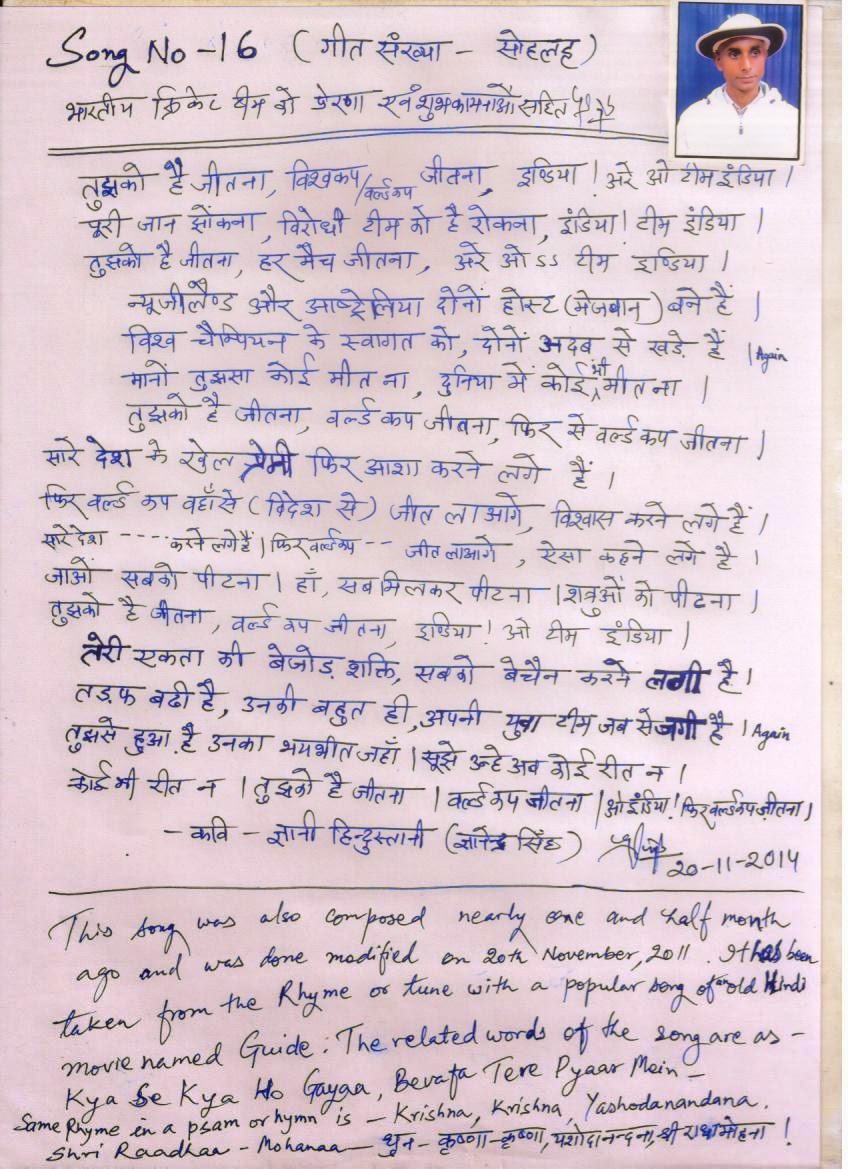 Song No -16 (गीत संख्या - सोहलह)
भारतीय क्रिकेट टीम को प्रेरणा एवं शुभकामनाओं सहित
तुझको है जीतना, विश्वकप/वर्ल्डकप जीतना, इण्डिया ! अरे ओ टीम इंडिया ।
पूरी जान झोंकना, विरोधी टीम को है रोकना, इंडिया! टीम इंडिया ।
तुझको है जीतना, हर मैच जीतना, अरे ओ ऽऽ टीम इण्डिया ।
न्यूजीलैण्ड और आष्ट्रेलिया दोनों होस्ट (मेजबान) बने हैं ।
विश्व चैम्पियन के स्वागत को, दोनों अदब से खड़े हैं । Again
मानों तुझसा कोई मीत ना, दुनिया में कोई भी मीत ना ।
तुझको है जीतना, वर्ल्ड कप जीतना, फिर से वर्ल्ड कप जीतना ।
सारे देश के खेल प्रेमी फिर आशा करने लगे हैं ।
फिर वर्ल्ड कप वहाँ से (विदेश से) जीत लाओगे, विश्वास करने लगे हैं ।
सारे देश ---- करने लगे हैं । फिर वर्ल्डकप -- जीत लाओगे, ऐसा कहने लगे है ।
जाओं सबको पीटना । हाँ, सब मिलकर पीटना । शत्रुओं को पीटना ।
तुझको है जीतना, वर्ल्ड कप जीतना, इण्डिया! ओ टीम इंडिया ।
तेरी एकता की बेजोड़ शक्ति, सबको बेचैन करने लगी है ।
तड़फ बढी है, उनकी बहुत ही, अपनी युवा टीम जब से जगी है । Again
तुझसे हुआ है उनका भयभीत जहाँ । सूझे उन्हे अब कोई रीत न ।
कोई भी रीत न । तुझको है जीतना । वर्ल्ड कप जीतना । ओ इंडिया! फिर वर्ल्डकप जीतना ।
- कवि - ज्ञानी हिन्दुस्तानी (ज्ञानेन्द्र सिंह)
20-11-2014
This song was also composed nearly one and half month
ago and was done modified on 20th November, 2011. It has been
taken from the Rhyme or tune with a popular song of an old Hindi
movie named Guide. The related words of the song are as -
Kya Se Kya Ho Gayaa, Bevafa Tere Pyaar Mein -
Same Rhyme in a psam or hymn is - Krishna, Krishna, Yashodanandana,
Shri Raadhaa - Mohanaa - धुन - कृष्णा-कृष्णा, यशोदानन्दना, श्री राधामोहना !